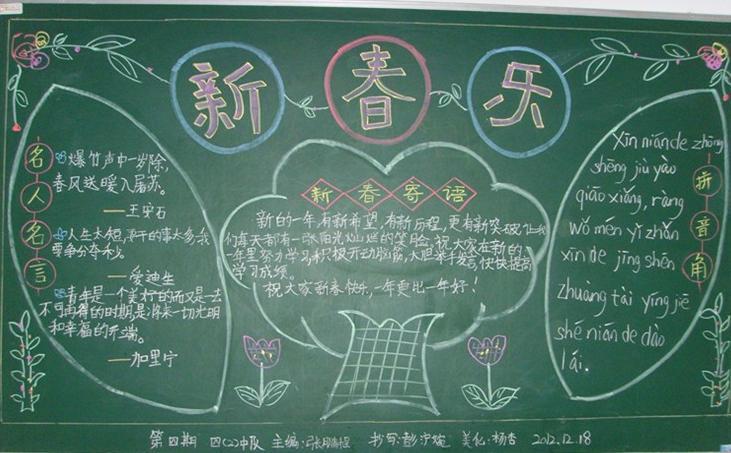 新春乐
名人名言
爆竹声中一岁除,
春风送暖入屠苏。
——王安石
人生太短,要干的事太多,我
要争分夺秒。
——爱迪生
青年是一个美好的而又是一去
不可再得的时期,是将来一切光明
和幸福的开端。
——加里宁
新春寄语
新的一年,有新希望,有新历程,更有新突破,让我
们每天都有一张阳光灿烂的笑脸。祝大家在新的
一年里努力学习,积极开动脑筋,大胆举手发言,快快提高
学习成绩。
祝大家新春快乐,一年更比一年好!
拼音角
Xīn nián de zhōng
shēng jiù yào
qiāo xiǎng, ràng
wǒ mén yǐ zhǎn
xīn de jīng shén
zhuàng tài yíng jiē
shé nián de dào
lái.
第四期 四(2)中队 主编: 书写:彭 美化:杨杏 2012.12.18